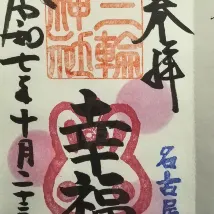 奉拝
名古屋
三輪
神社
幸福
令和七年十月二十